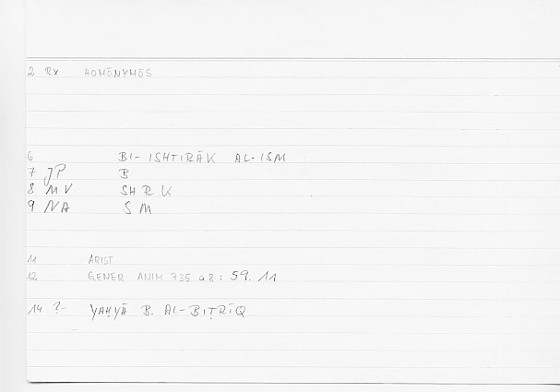 2 Rx HOMŌNYMŌS
6 BI-ISHTIRĀK AL-ISM
7 JP B
8 MV SHRK
9 NA SM
11 ARIST
12 GENER ANIM 735 a8: 59.11
14 ?- YAḤYĀ B. AL-BIṬRĪQ